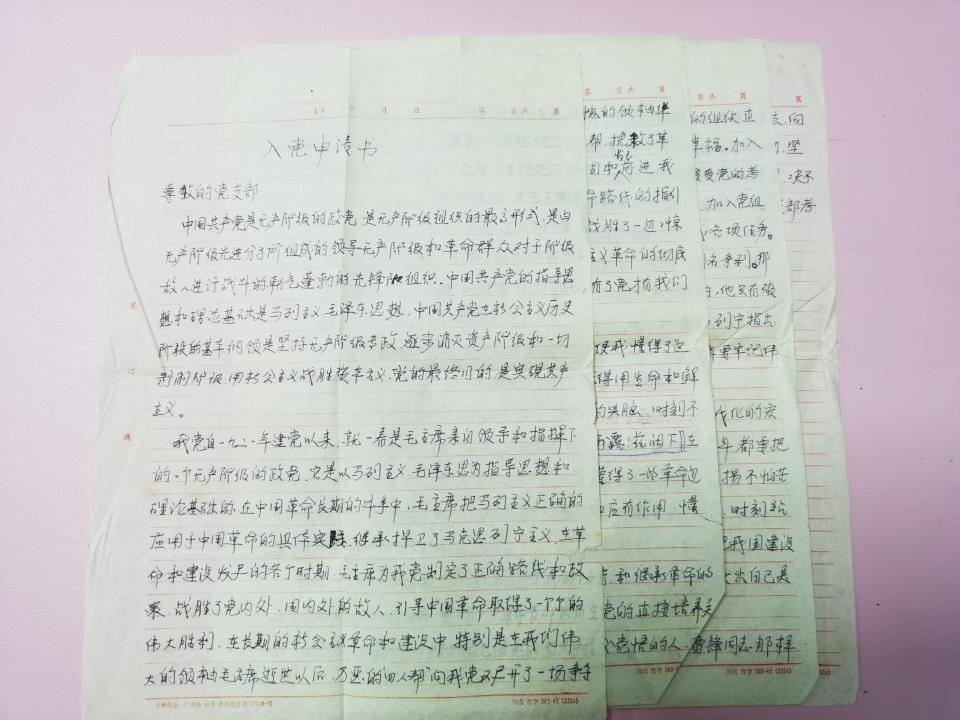 入党申请书
尊敬的党支部
中国共产党是无产阶级的政党，是无产阶级组织的最高形式，是由
无产阶级先进分子所组成的领导无产阶级和革命群众对于阶级
敌人进行战斗的朝气蓬勃的先锋队组织。中国共产党的指导思
想和理论基础是马列主义 毛泽东思想。中国共产党在社会主义历史
阶段的基本纲领是坚持无产阶级专政，逐步消灭资产阶级和一切
剥削阶级，用社会主义战胜资本主义，党的最终目的是实现共产
主义。
我党自一九二一年建党以来，就一
的一个无产阶级的政党，它是以马列主义 毛泽东思为指导思想和
理论基础的，在中国革命长期的斗争中，毛主席把马列主义正确的
应用于中国革命的具体实践，继承捍卫了马克思列宁主义，在革
命和建设发展的各个时期，毛主席为我党制定了正确路线和政
策，战胜了党内外、国内外的敌人，引导中国革命取得了一个个的
伟大胜利，在长期的社会主义革命和建设中，特别是在我们伟
大的领袖毛主席逝世以后，万恶的“四人帮”向我党又展开了一场
的领袖华
帮，挽救了革
前进 我
命路线的指引
战胜了一切惊
义革命的彻底
有了党才有我们
使我懂得了
得用生命和鲜
的头脑，时刻不
懂得了一
应有作用，懂
和继承革命的
党的直接培养关
党悟的人，雷锋同志那样
的组织，直
幸福。加入
接受党的考
加入党组
各项任务。
名争利。那
，他只有
列宁指出
要牢记伟
代化的宏
年 都要把
扬不怕苦
时刻
我国建设
出自己
向
坚
决不
部考
302-45 (2326)